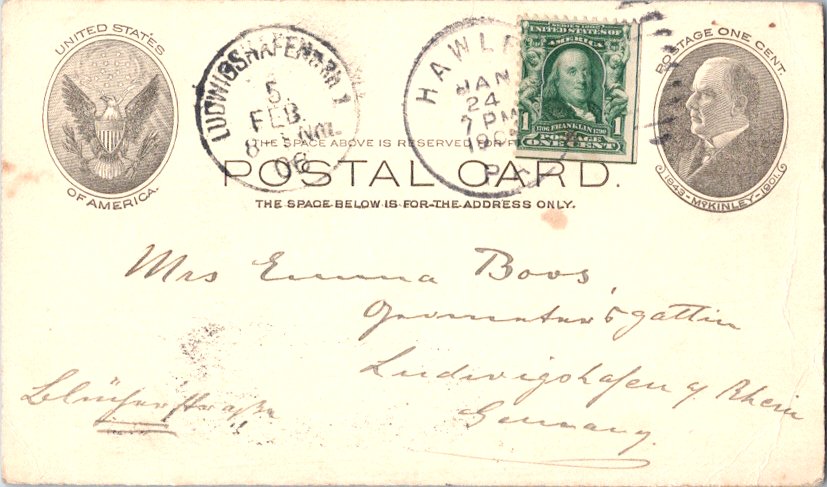 UNITED STATES
OF AMERICA.
LUDWIGSHAFEN
5
FEB.
06
HAWLE
JAN
24
7 PM
SERIES 1902
UNITED STATES OF
AMERICA
1 1
1706 FRANKLIN 1790
POSTAGE
ONE CENT
POSTAGE ONE CENT.
1843-McKINLEY-1901.
THE SPACE ABOVE IS RESERVED FOR
POSTAL CARD.
THE SPACE BELOW IS FOR THE ADDRESS ONLY.
Mrs Emma Boos,
Geometers gattin
Ludwigshafen a/ Rhein
Germany.
Blücherstraße